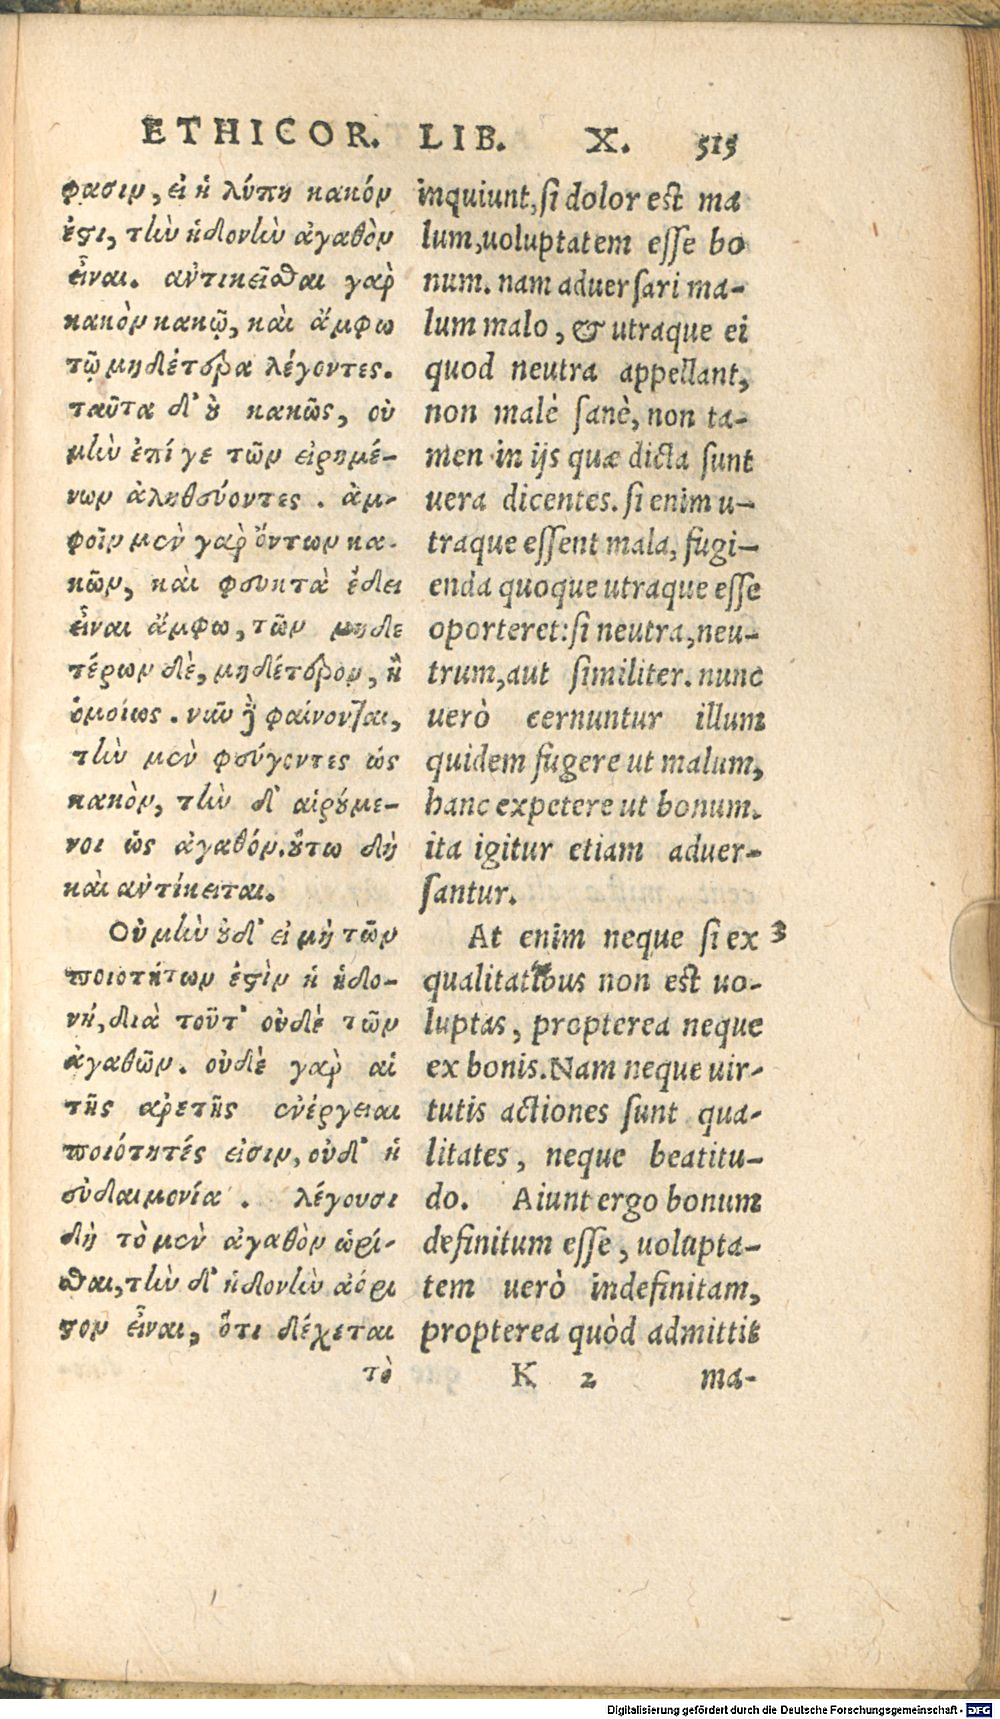 ETHICOR. LIB. X. 515
φασιν, εἰ ἡ λύπη κακόν
ἐϛι, τὴν ἡδονὴν ἀγαθὸν
εἶναι. ἀντικεῖσθαι γὰρ
κακὸν κακῷ, καὶ ἄμφω
τῷ μηδέτερα λέγοντες.
ταῦτα δ' ȣ̓ κακῶς, οὐ
μὴν ἐπί γε τῶν εἰρημέ-
νων ἀληθεύοντες. ἀμ-
φοῖν μὲν γὰρ ὄντων κα-
κῶν, καὶ φευκτὰ ἔδει
εἶναι ἄμφω, τῶν μηδε
τέρων δὲ, μηδέτερον, ἢ
ὁμοίως. νῦν δὲ φαίνονται,
τὴν μὲν φεύγοντες ὡς
κακὸν, τὴν δ' αἱρȣ́με-
νοι ὡς ἀγαθόν. ȣ̔́τω δὴ
καὶ ἀντίκειται.
Οὐ μὴν ȣ̓δ' εἰ μὴ τῶν
ποιοτήτων ἐϛὶν ἡ ἡδο-
νή, διὰ τοῦτ' οὐδὲ τῶν
ἀγαθῶν. οὐδὲ γὰρ αἱ
τῆς ἀρετῆς ἐνέργειαι
ποιότητές εἰσιν, οὐδ' ἡ
εὐδαιμονία. λέγουσι
δὴ τὸ μὲν ἀγαθὸν ὡρί-
σθαι, τὴν δ' ἡδονὴν ἀόρι
ϛον εἶναι, ὅτι δέχεται
τὸ
inquiunt, si dolor est ma
lum, uoluptatem esse bo
num. nam aduersari ma-
lum malo, & utraque ei
quod neutra appellant,
non malè sanè, non ta-
men in ijs quæ dicta sunt
uera dicentes. si enim u-
traque essent mala, fugi-
enda quoque utraque esse
oporteret: si neutra, neu-
trum, aut similiter. nunc
uerò cernuntur illum
quidem fugere ut malum,
hanc expetere ut bonum.
ita igitur etiam aduer-
santur.
At enim neque si ex 3
qualitatibus non est uo-
luptas, propterea neque
ex bonis. Nam neque uir-
tutis actiones sunt qua-
litates, neque beatitu-
do. Aiunt ergo bonum
definitum esse, uolupta-
tem uerò indefinitam,
propterea quòd admittit
K 2 ma-
Digitalisierung gefördert durch die Deutsche Forschungsgemeinschaft - DFG